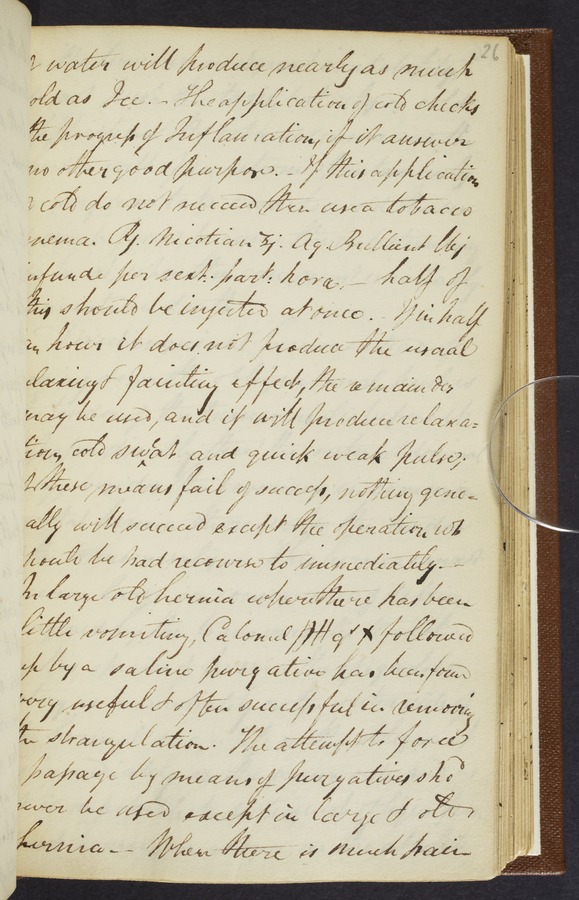 26
water will produce nearly as much
old as Ice. - The application of cold checks
the progress of Inflamation, if it answer
no other good purpose. - If this application
cold do not succeed then use a tobacco
nema. Rj. Nicotian ʒj. Aq Bullient lbj
infunde per sext. part: hora. - half of
this should be injected at once. - If in half
an hour it does not produce the usual
laxing & fainting effect, the remainder
may be used, and it will produce relaxa=
tion, cold sweat and quick weak pulse;
If these means fail of success, nothing gene=
ally will succeed except the operation wh
hould be had recourse to immediately. -
In large old hernia where there has been
little vomiting, Calomel gr X followed
up by a saline purgative has been found
very useful & often successful in removing
the strangulation. The attempt to force
passage by means of purgatives shd
never be used except in large & old
hernia - - When there is much pain